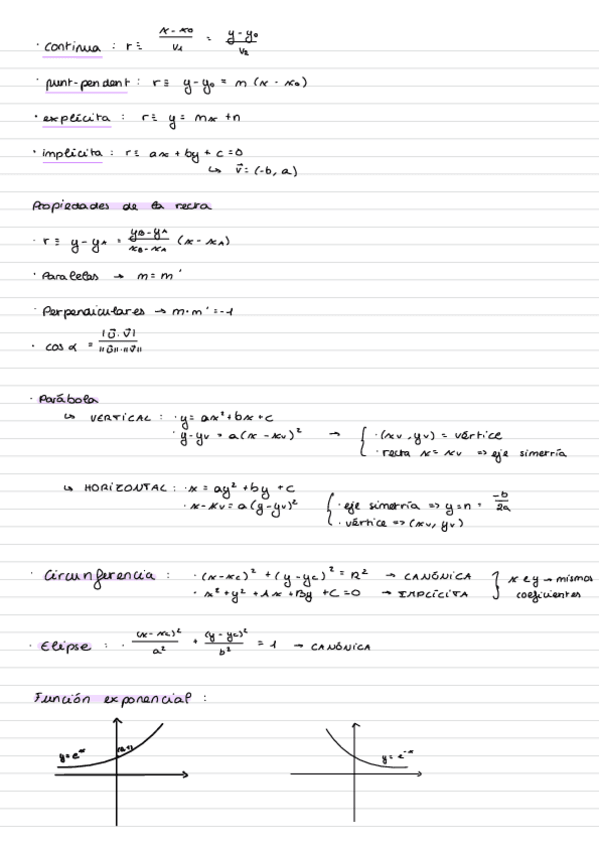 · continua : r ≡ x - x₀ / v₁ = y - y₀ / v₂
· punt-pendent : r ≡ y - y₀ = m (x - x₀)
· explícita : r ≡ y = mx + n
· implícita : r ≡ ax + by + c = 0
↳ v⃗ = (-b, a)
Propiedades de la recta
· r ≡ y - yA = yB - yA / xB - xA (x - xA)
· Paralelas → m = m'
· Perpendiculares → m · m' = -1
· cos α = |u⃗ · v⃗| / ||u⃗|| · ||v⃗||
· Parábola
↳ VERTICAL : · y = ax² + bx + c
· y - yv = a(x - xv)² → { · (xv, yv) = vértice
· recta x = xv => eje simetría
↳ HORIZONTAL : · x = ay² + by + c
· x - xv = a(y - yv)² { · eje simetría => y = n = -b / 2a
· vértice => (xv, yv)
· Circunferencia : · (x - xc)² + (y - yc)² = R² → CANÓNICA } x e y → mismos
· x² + y² + Ax + By + C = 0 → IMPLÍCITA coeficientes
· Elipse : · (x - xc)² / a² + (y - yc)² / b² = 1 → CANÓNICA
Función exponencial :
y = eˣ (0,1) y = e⁻ˣ